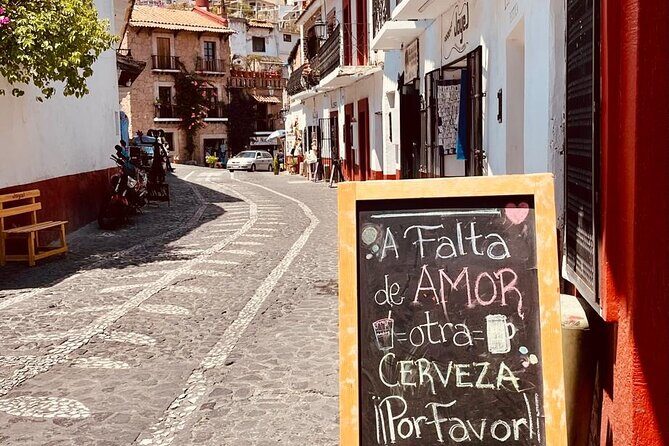 A Falta
de AMOR,
=otra=
CERVEZA
¡¡Por Favor!